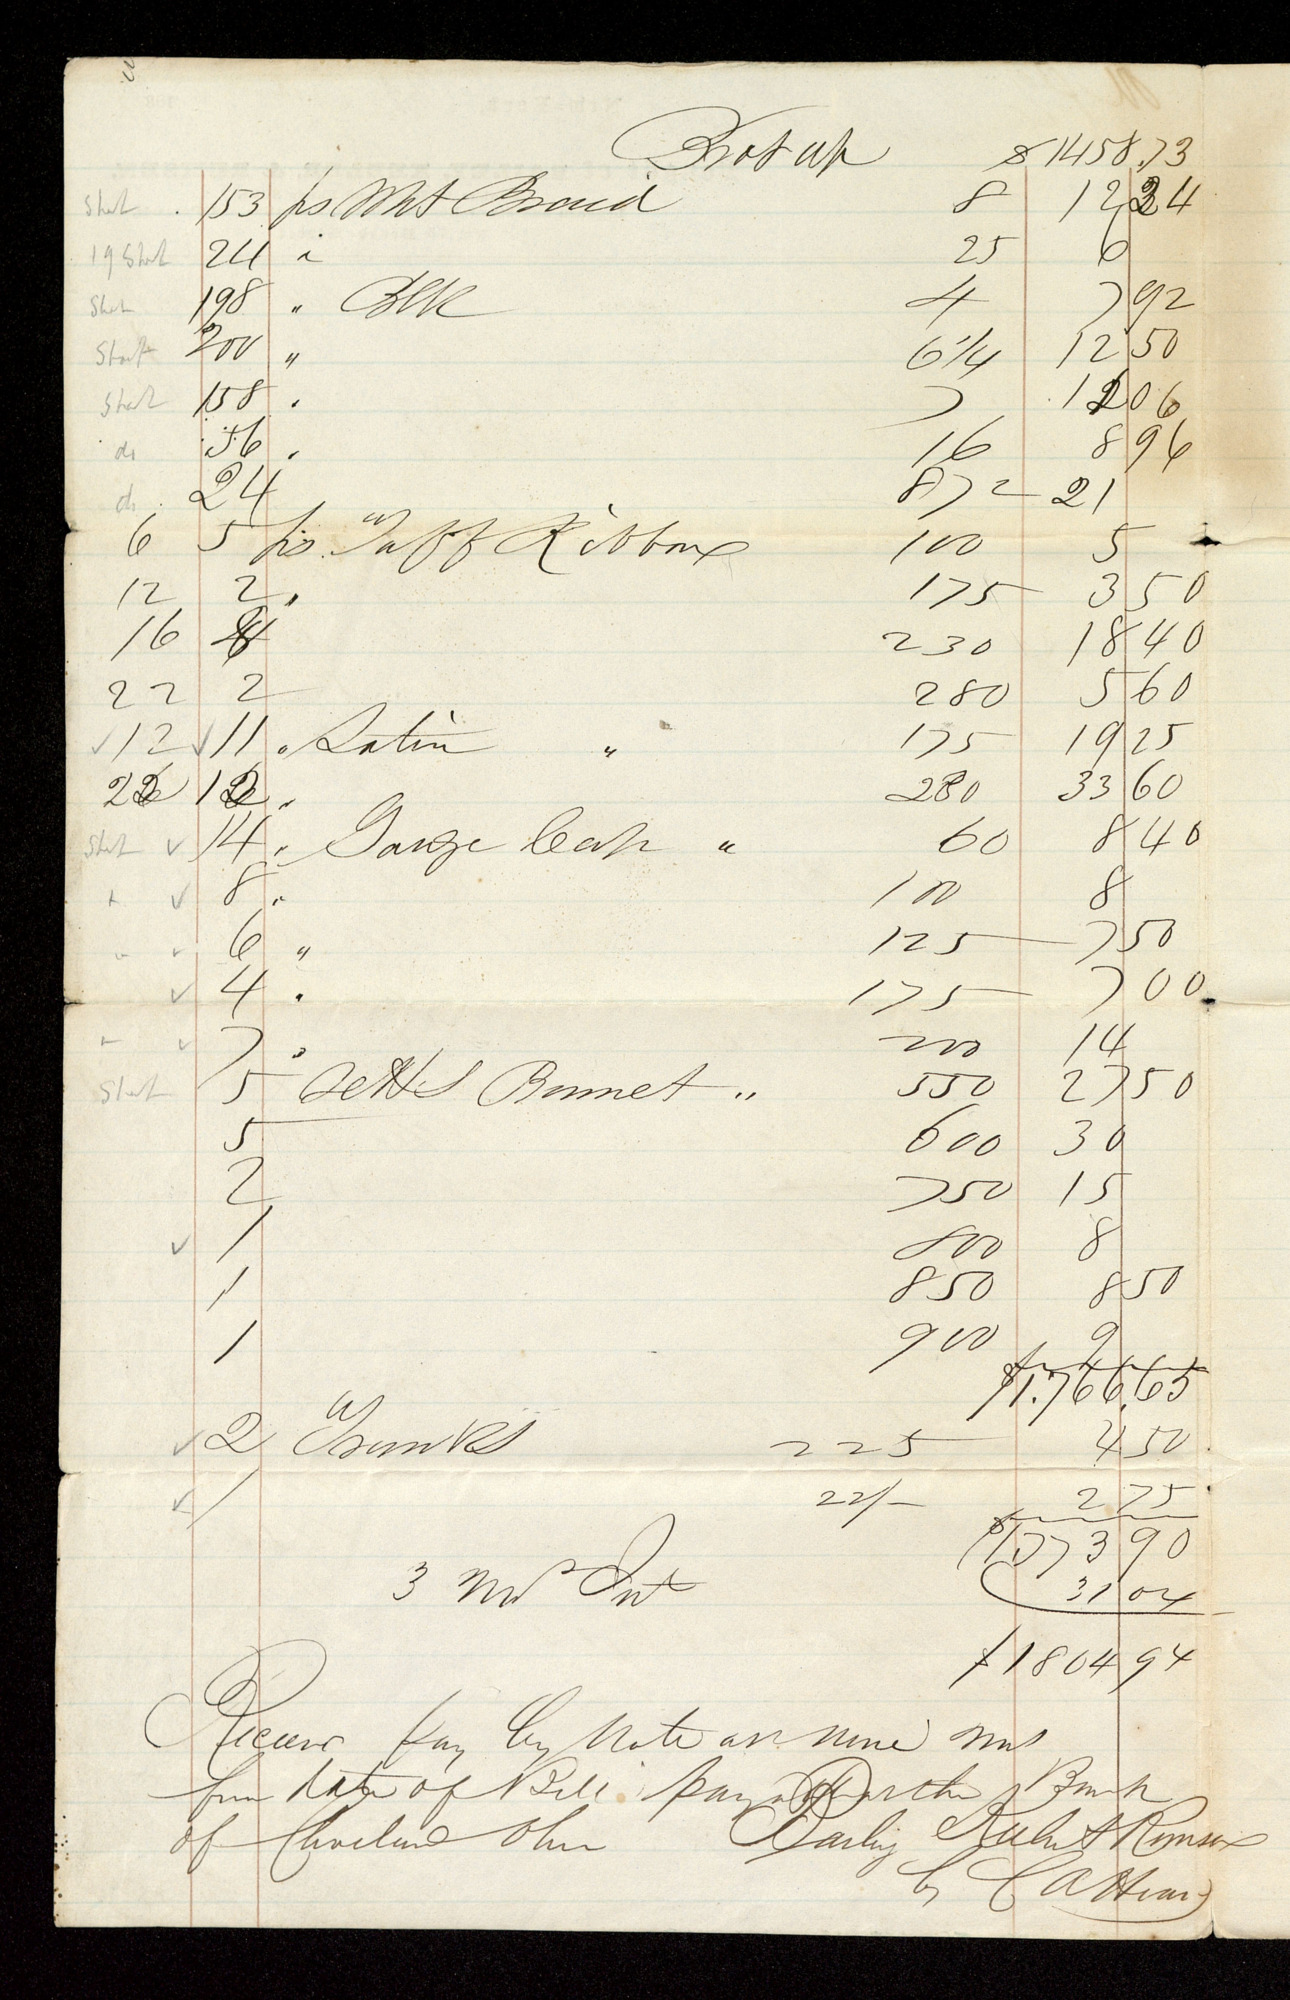 Brot up $1458.73
Short 153 ps Wht Braid 8 12 24
19 Short 24 " 25 6
Short 198 " Blk 4 7 92
Short 200 " 6 1/4 12 50
Short 158 " 7 11 06
do 56 " 16 8 96
do 24 87 1/2 21
6 5 ps Taff Ribbons 100 5
12 2 " 175 3 50
16 8 230 18 40
22 2 280 5 60
12 11 " Satin " 175 19 25
22 12 " 280 33 60
Short 14 " Gauze Cap " 60 8 40
" 8 " 100 8
" 6 " 125 7 50
4 " 175 7 00
" 7 " 200 14
Short 5 Bonnet " 550 27 50
5 600 30
2 750 15
1 800 8
1 850 8 50
1 900 9
$1.766.65
2 Trunks 225 4 50
1 22/- 2 75
$1,773 90
3 Mos Int 31 04
$1804 94
pay by Note at nine mos
from date of Bill Bank
of Cleveland Ohio Darling
by C A